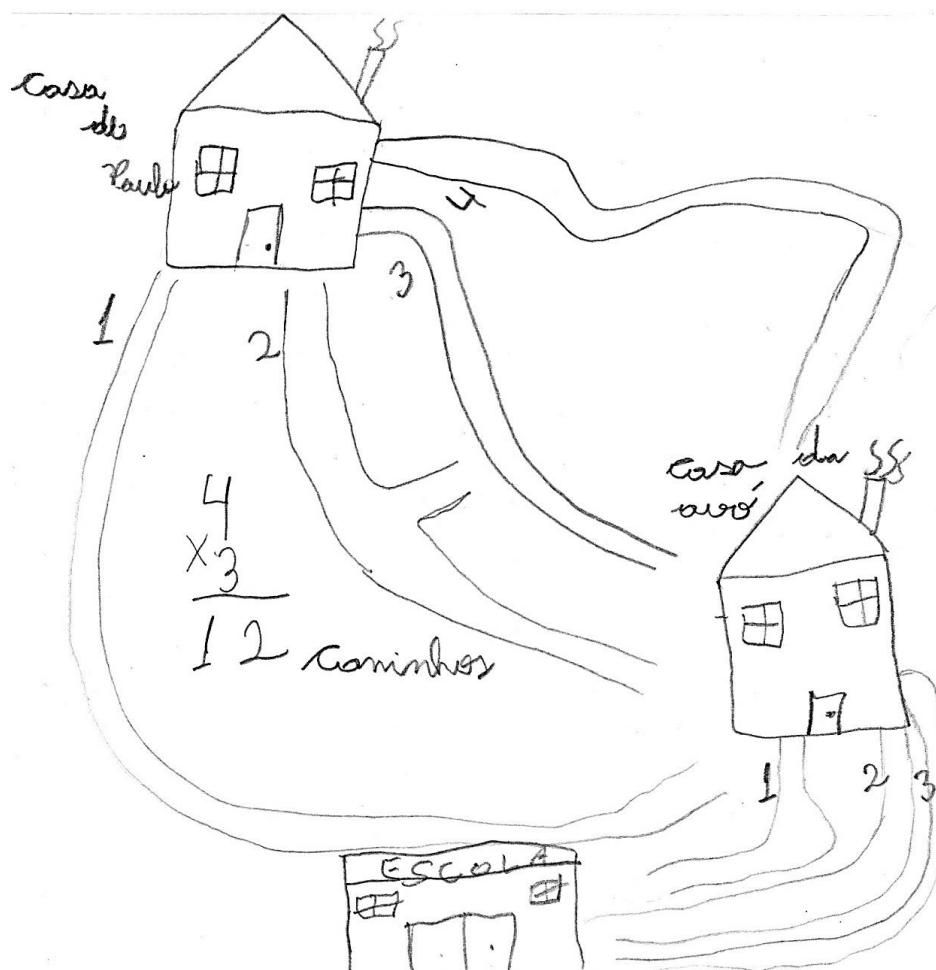 casa
de
Paulo
4
3
1
2
4
x3
12 caminhos
casa da
avó
1
2
3
ESCOLA